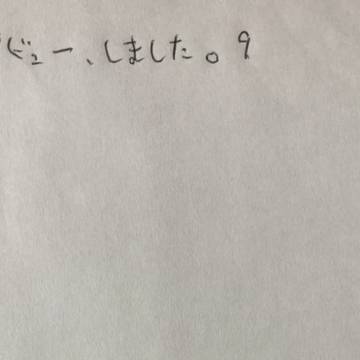 ビュー、しました。9